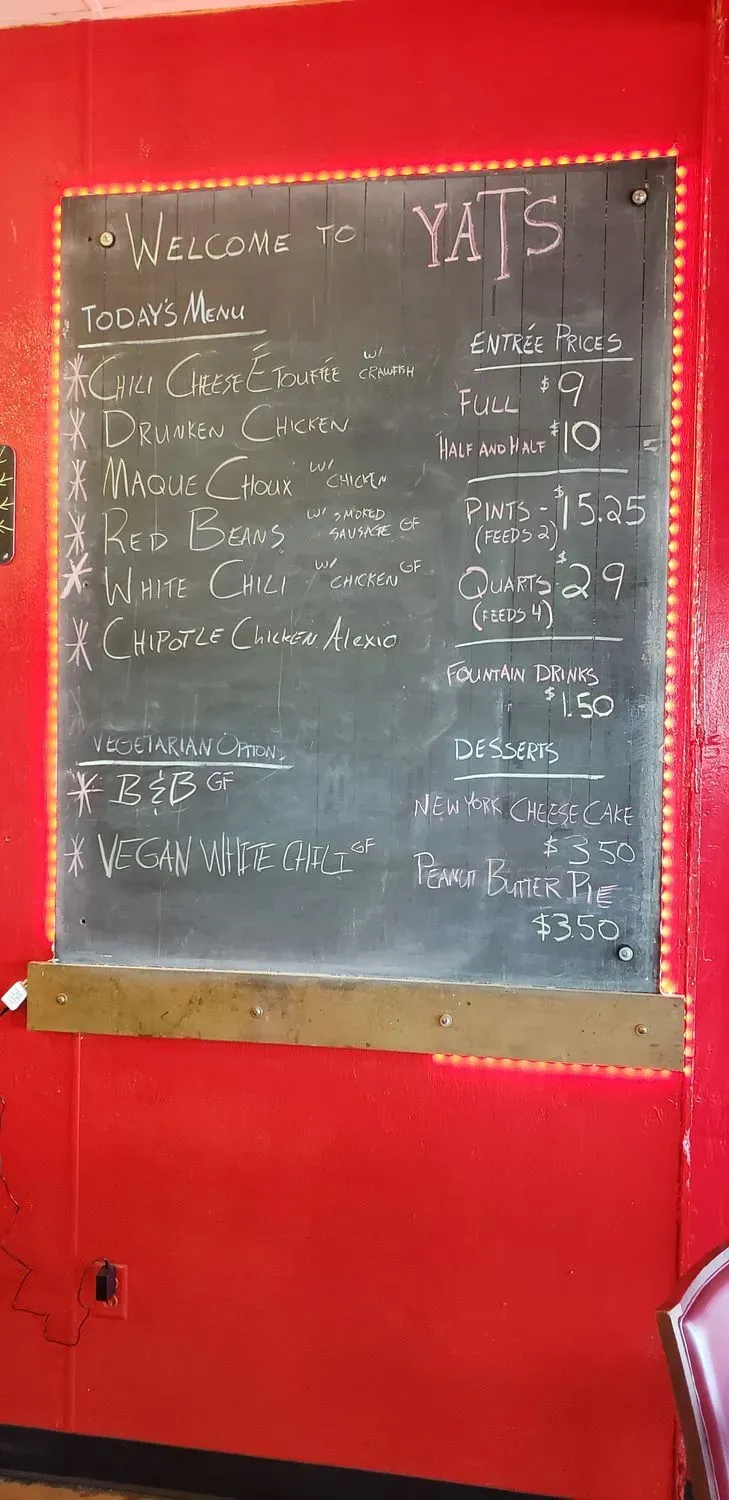 WELCOME TO YATS
TODAY'S MENU
CHILI CHEESE ÉTOUFÉE W/ CRAWFISH
DRUNKEN CHICKEN
MAQUE CHOUX W/ CHICKEN
RED BEANS W/ SMOKED SAUSAGE GF
WHITE CHILI W/ CHICKEN GF
CHIPOTLE CHICKEN Alexio
VEGETARIAN OPTIONS
B&B GF
VEGAN WHITE CHILI GF
ENTRÉE PRICES
FULL $9
HALF AND HALF $10
PINTS - $15.25
(FEEDS 2)
QUARTS $29
(FEEDS 4)
FOUNTAIN DRINKS
$1.50
DESSERTS
NEW YORK CHEESE CAKE
$3.50
PEANUT BUTTER PIE
$3.50